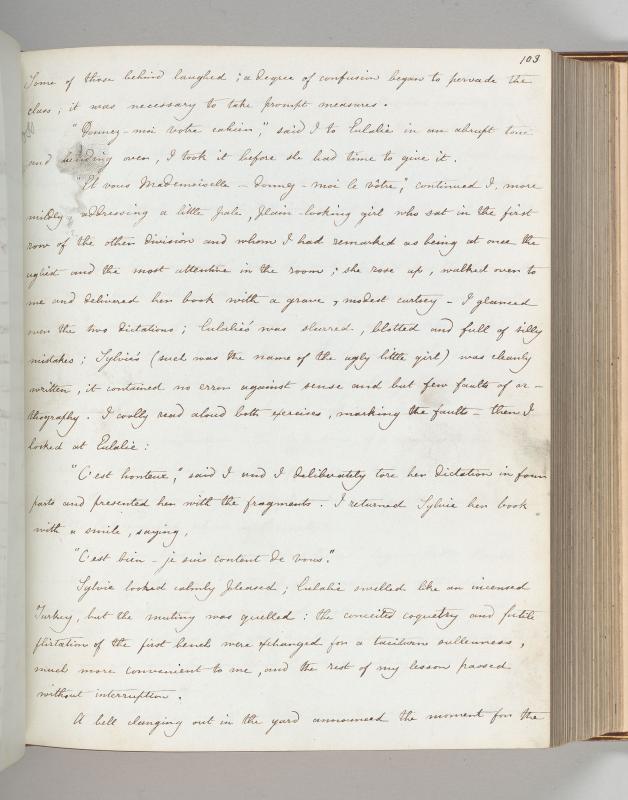 103
Some of those behind laughed ; a degree of confusion began to pervade the
class ; it was necessary to take prompt measures .
"Donnez-moi votre cahier," said I to Eulalie in an abrupt tone
and bending over, I took it before she had time to give it .
"Et vous Mademoiselle - donnez-moi le vôtre," continued I, more
mildly addressing a little pale, plain-looking girl who sat in the first
row of the other division and whom I had remarked as being at once the
ugliest and the most attentive in the room ; she rose up, walked over to
me and delivered her book with a grave, modest curtsey - I glanced
over the two dictations ; Eulalie's was slurred, blotted and full of silly
mistakes ; Sylvie's (such was the name of the ugly little girl) was cleanly
written, it contained no error against sense and but few faults of or-
thography. I coolly read aloud both exercises, marking the faults - then I
looked at Eulalie :
"C'est honteux," said I and I deliberately tore her dictation in four
parts and presented her with the fragments. I returned Sylvie her book
with a smile, saying,
"C'est bien - je suis content de vous."
Sylvie looked calmly pleased ; Eulalie swelled like an incensed
Turkey, but the mutiny was quelled : the conceited coquetry and futile
flirtation of the first bench were exchanged for a taciturn sullenness,
much more convenient to me, and the rest of my lesson passed
without interruption .
A bell clanging out in the yard announced the moment for the